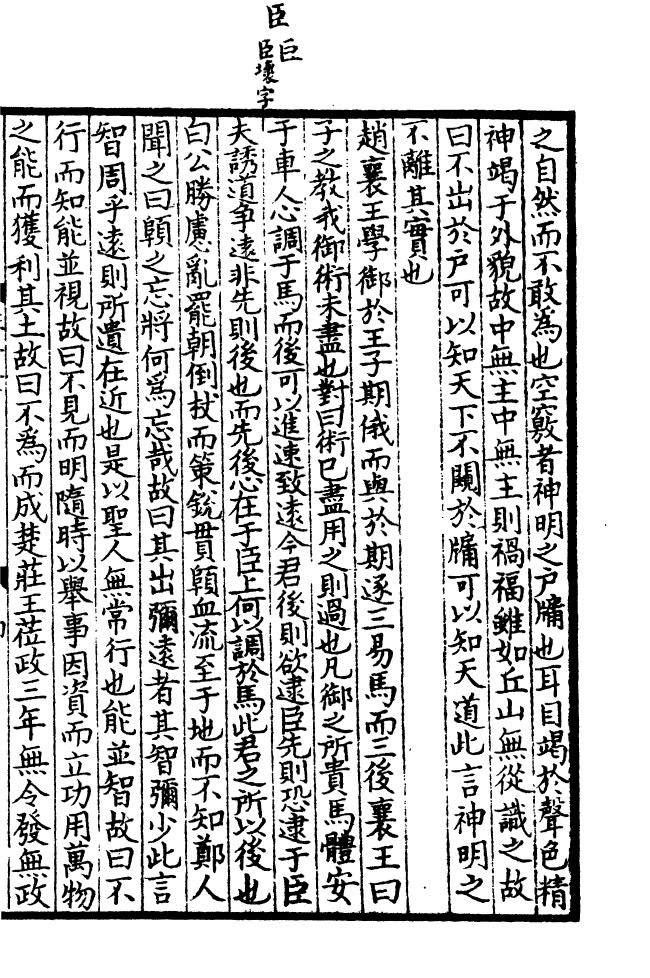 臣
臣巨
壞字
之自然而不敢為也空竅者神明之戶牖也耳目竭於聲色精
神竭于外貌故中無主中無主則禍福雖如丘山無從識之故
曰不出於戶可以知天下不闚於牖可以知天道此言神明之
不離其實也
趙襄王學御於王子期俄而與於期逐三易馬而三後襄王曰
子之教我御術未盡也對曰術已盡用之則過也凡御之所貴馬體安
于車人心調于馬而後可以進速致遠今君後則欲逮臣先則恐逮于臣
夫誘道爭遠非先則後也而先後心在于臣上何以調於馬此君之所以後也
白公勝慮亂罷朝倒杖而策銳貫顊血流至于地而不知鄭人
聞之曰顊之忘將何為忘哉故曰其出彌遠者其智彌少此言
智周乎遠則所遺在近也是以聖人無常行也能並智故曰不
行而知能並視故曰不見而明隨時以舉事因資而立功用萬物
之能而獲利其上故曰不為而成楚莊王莅政三年無令發無政